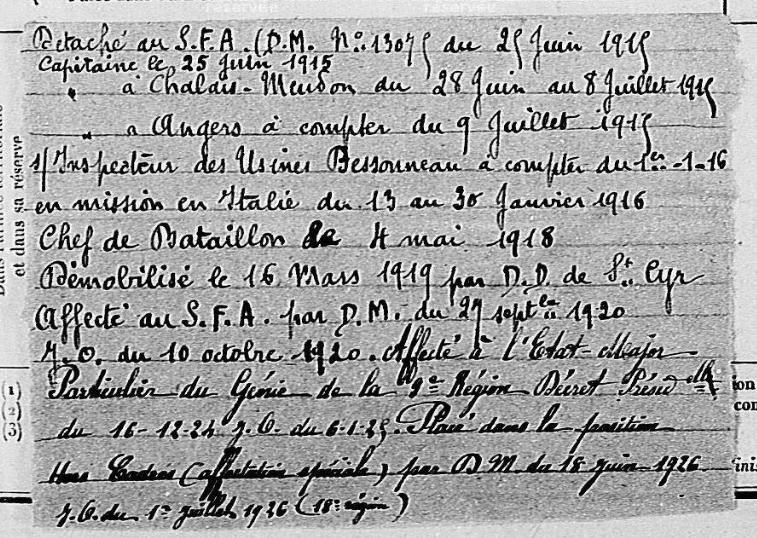 Détaché au S.F.A. (D.M. N° 13075 du 25 Juin 1915
Capitaine le 25 Juin 1915
" à Chalais-Meudon du 28 Juin au 8 Juillet 1915
" a Angers à compter du 9 Juillet 1915
s/Inspecteur des Usines Bessonneau à compter du 1er-1-16
en mission en Italie du 13 au 30 Janvier 1916
Chef de Bataillon le 4 mai 1918
Démobilisé le 16 Mars 1919 par D.D. de St Cyr
Affecté au S.F.A. par D.M. du 27 septbre 1920
J.O. du 10 octobre 1920. Affecté à l'Etat-Major
Particulier du Génie de la 9e Région Décret Présid
du 16-12-24 J.O. du 6-1-25. Placé dans la position
Hors Cadres (affectation spéciale) par D.M. du 18 juin 1926
J.O. du 1er juillet 1926 (18e région)
et dans sa réserve
(1)
(2)
(3)
ion
con